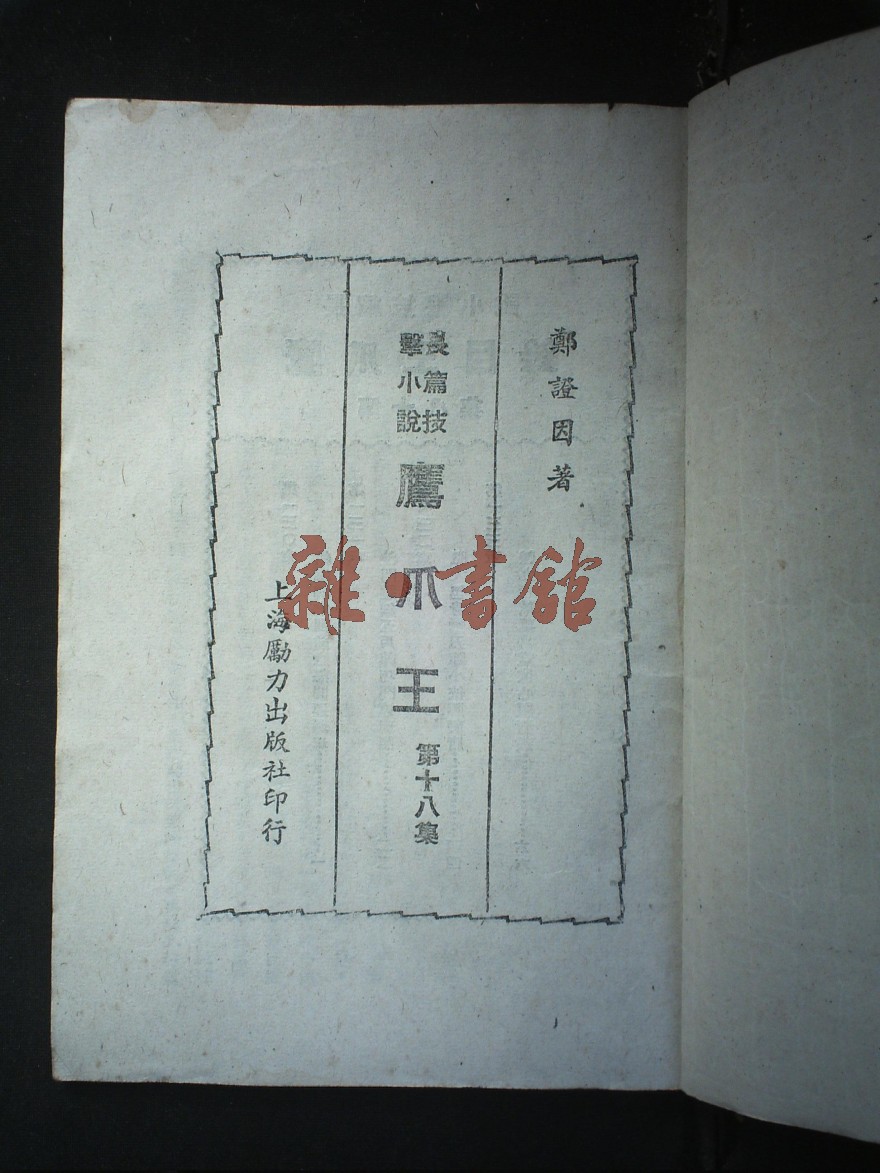 鄭證因著
長篇技
擊小說
鷹爪王
第十八集
上海勵力出版社印行
雜·書館